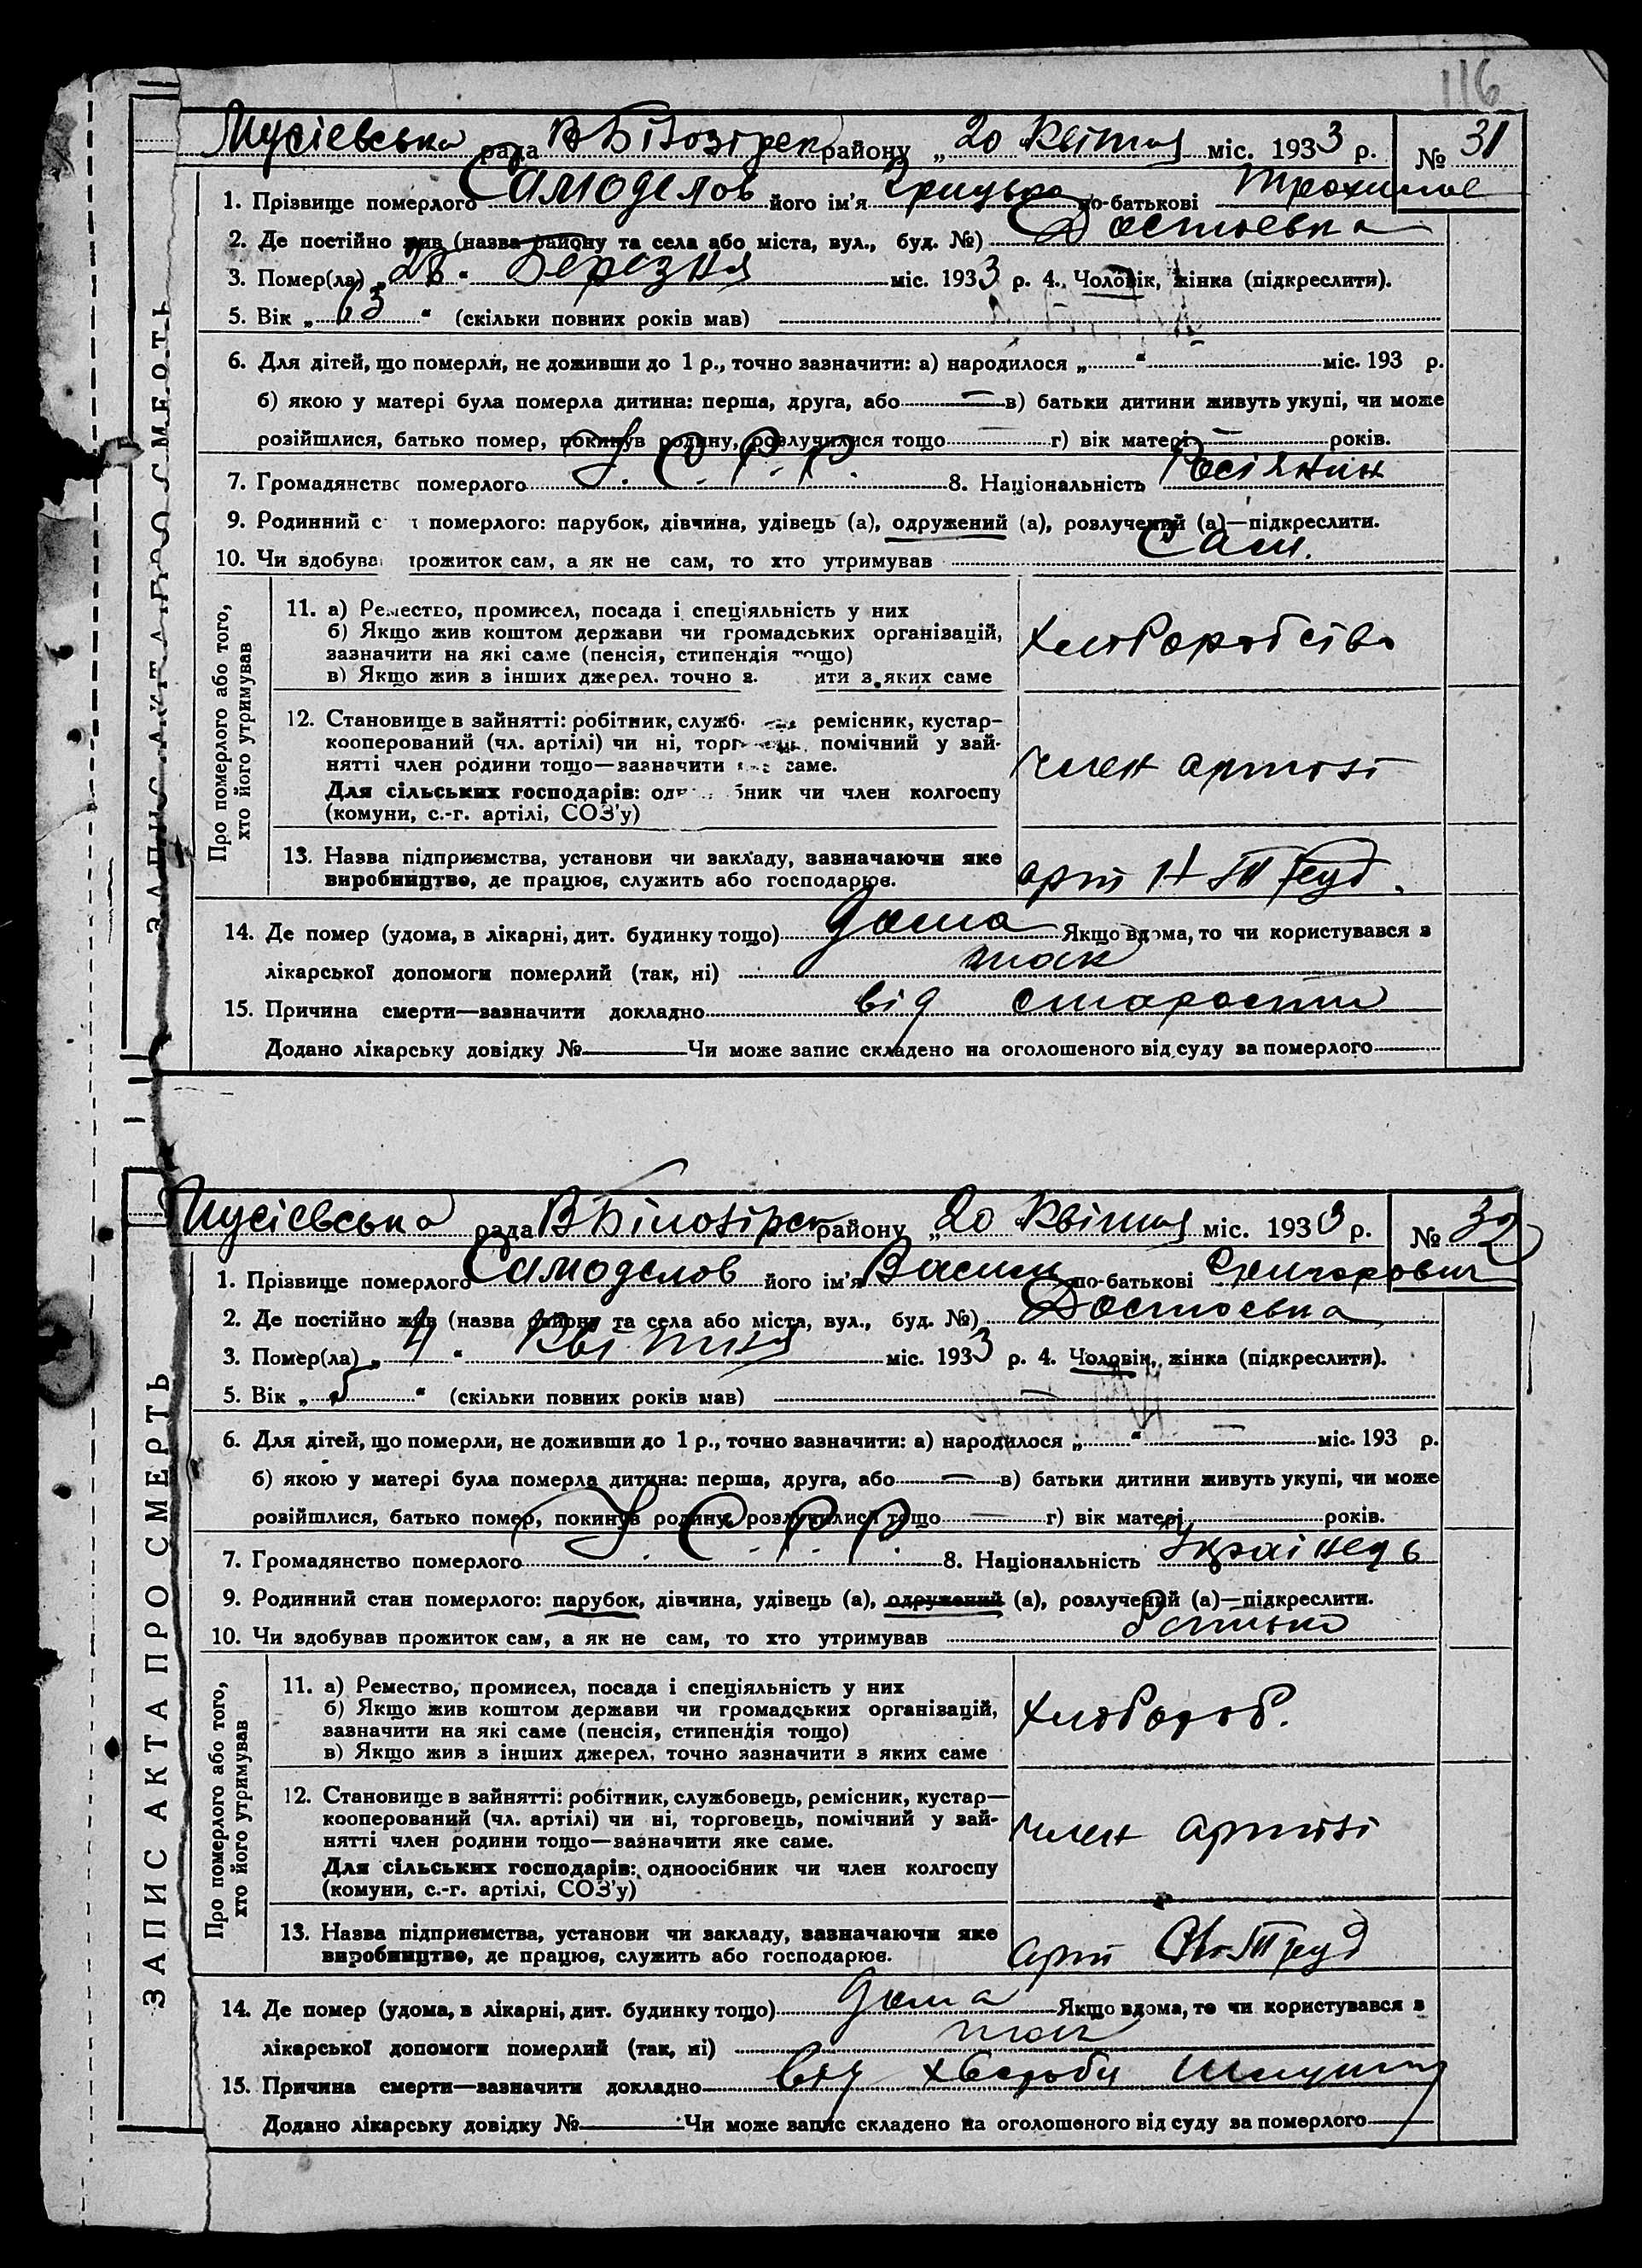 116
ЗАПИС АКТА ПРО СМЕРТЬ
Мусіевська рада В Білозірск району „20 Квітня міс. 1933 р. № 31
1. Прізвище померлого Самоделов його ім'я Грицько по-батькові
2. Де постійно жив (назва району та села або міста, вул., буд. №) Достоевка
3. Помер(ла) „28“ Березня міс. 1933 р. 4. Чоловік, жінка (підкреслити).
5. Вік „ “ (скільки повних років мав)
6. Для дітей, що померли, не доживши до 1 р., точно зазначити: а) народилося „ “ міс. 193 р.
б) якою у матері була померла дитина: перша, друга, або — в) батьки дитини живуть укупі, чи може
розійшлися, батько помер, покинув родину, розлучилися тощо — г) вік матері — років.
7. Громадянство померлого У.С.Р.Р. 8. Національність Росіянин
9. Родинний с т померлого: парубок, дівчина, удівець (а), одружений (а), розлучений (а)—підкреслити.
10. Чи здобува прожиток сам, а як не сам, то хто утримував Сам.
Про померлого або того,
хто його утримував
11. а) Ремество, промисел, посада і спеціяльність у них
б) Якщо жив коштом держави чи громадських організацій,
зазначити на які саме (пенсія, стипендія тощо)
в) Якщо жив з інших джерел. точно з ити з яких саме
хлоборобство
12. Становище в зайнятті: робітник, служб ремісник, кустар-
кооперований (чл. артілі) чи ні, торг помічний у зай-
нятті член родини тощо—зазначити саме.
Для сільських господарів: од бник чи член колгоспу
(комуни, с.-г. артілі, СОЗ'у)
член артілі
13. Назва підприємства, установи чи закладу, зазначаючи яке
виробництво, де працює, служить або господарює.
арт Труд.
14. Де помер (удома, в лікарні, дит. будинку тощо) дома Якщо вдома, то чи користувався з
лікарської допомоги померлий (так, ні) так
15. Причина смерти—зазначити докладно від старости
Додано лікарську довідку № — Чи може запис складено на оголошеного від суду за померлого
ЗАПИС АКТА ПРО СМЕРТЬ
Мусієвська рада В Білозірск району „20 Квітня міс. 1933 р. № 32
1. Прізвище померлого Самоделов його ім'я Васил по-батькові Григорович
2. Де постійно жив (назва району та села або міста, вул., буд. №) Достоевка
3. Помер(ла) „4“ Квітня міс. 1933 р. 4. Чоловік, жінка (підкреслити).
5. Вік „5“ (скільки повних років мав) —
6. Для дітей, що померли, не доживши до 1 р., точно зазначити: а) народилося „ “ — міс. 193 р.
б) якою у матері була померла дитина: перша, друга, або — в) батьки дитини живуть укупі, чи може
розійшлися, батько помер, покинув родину, розлучилися тощо — г) вік матері років.
7. Громадянство померлого У.С.Р.Р. 8. Національність Українець
9. Родинний стан померлого: парубок, дівчина, удівець (а), одружений (а), розлучений (а)—підкреслити.
10. Чи здобував прожиток сам, а як не сам, то хто утримував батько
Про померлого або того,
хто його утримував
11. а) Ремество, промисел, посада і спеціяльність у них
б) Якщо жив коштом держави чи громадських організацій,
зазначити на які саме (пенсія, стипендія тощо)
в) Якщо жив з інших джерел, точно зазначити з яких саме
хлобороб.
12. Становище в зайнятті: робітник, службовець, ремісник, кустар—
кооперований (чл. артілі) чи ні, торговець, помічний у зай-
нятті член родини тощо—зазначити яке саме.
Для сільських господарів: одноосібник чи член колгоспу
(комуни, с.-г. артілі, СОЗ'у)
член артілі
13. Назва підприємства, установи чи закладу, зазначаючи яке
виробництво, де працює, служить або господарює.
арт Труд
14. Де помер (удома, в лікарні, дит. будинку тощо) дома Якщо вдома, то чи користувався з
лікарської допомоги померлий (так, ні) так
15. Причина смерти—зазначити докладно від хвороби
Додано лікарську довідку № — Чи може запис складено на оголошеного від суду за померлого —